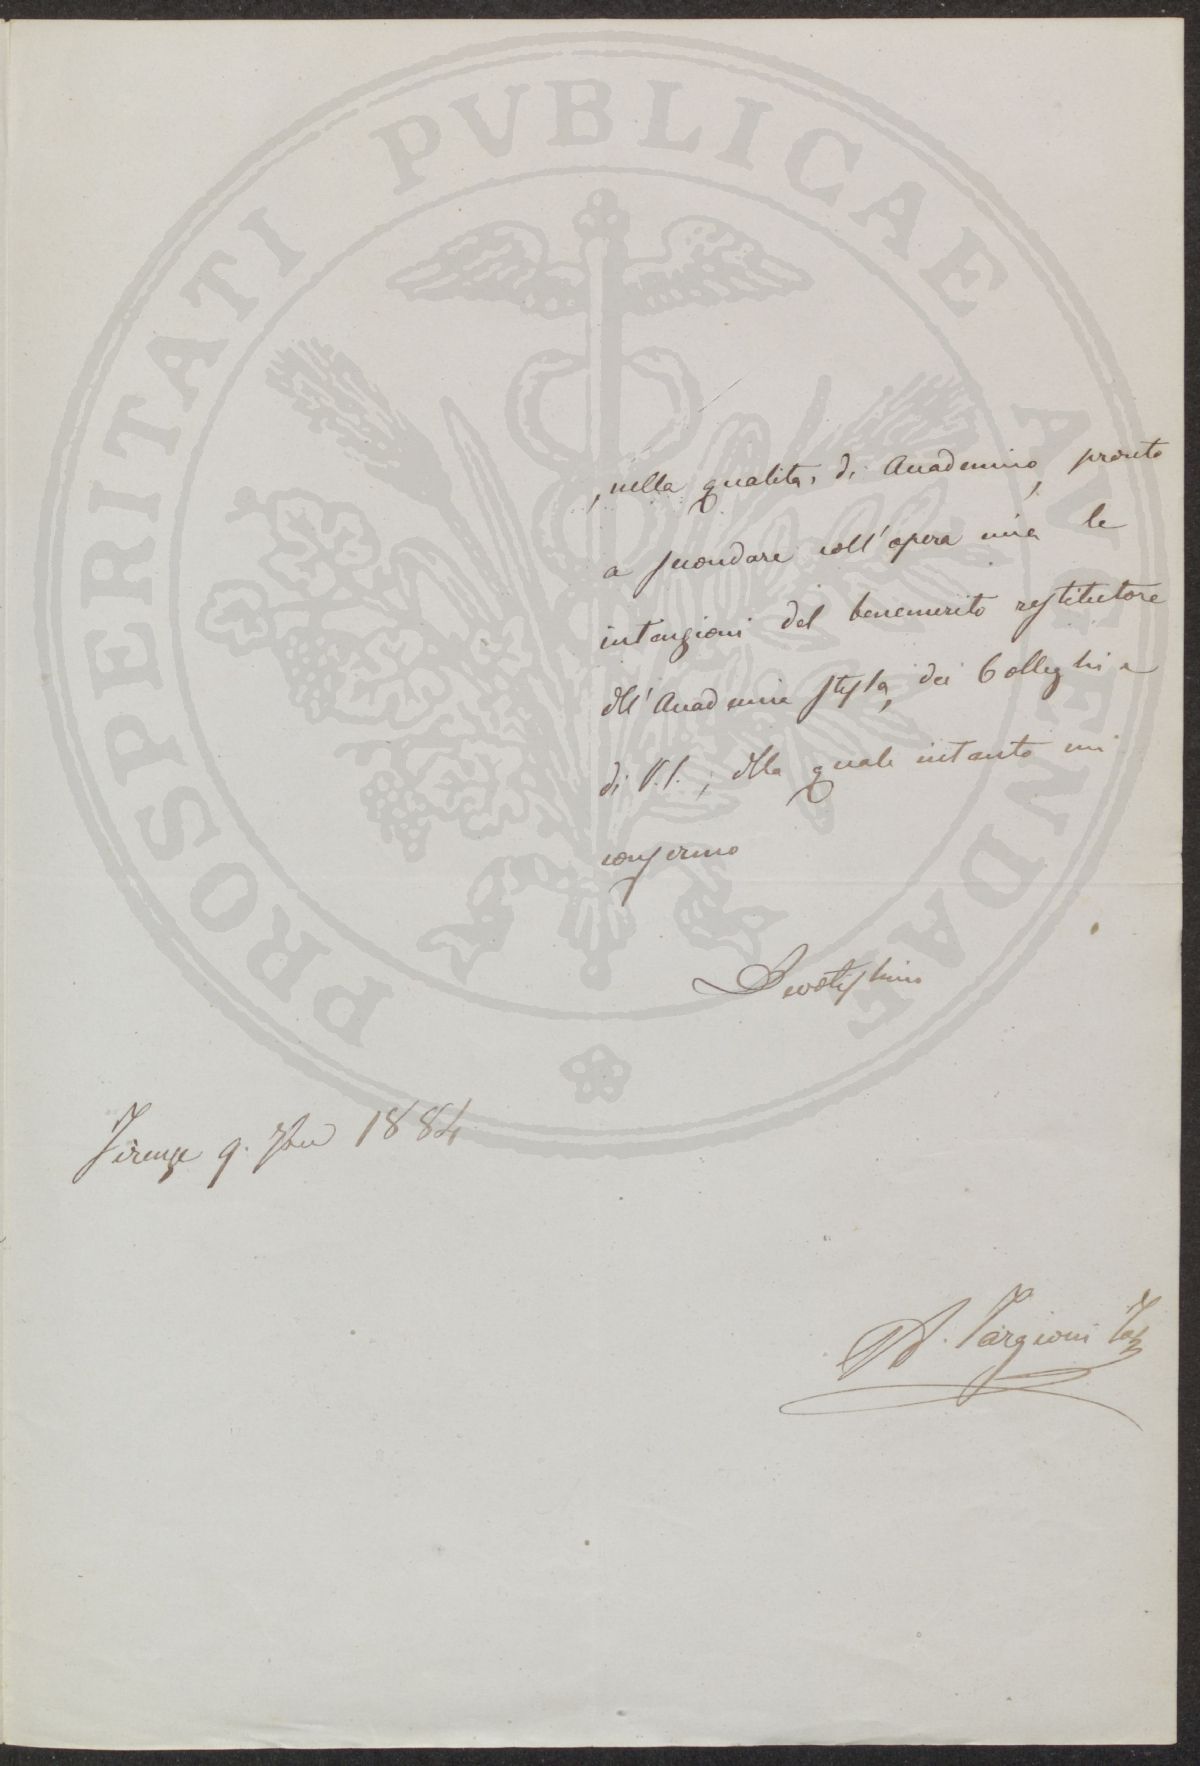 PROSPERITATI PVBLICAE AVGENDAE
, nella qualità, di Accademico, pronto
a secondare coll'opera mia le
intenzioni del benemerito restitutore
dell'Accademia stessa, dei Colleghi e
di V.S.; alla quale intanto mi
confermo
Devotissimo
Firenze 9. 1884
A. Targioni Tozz